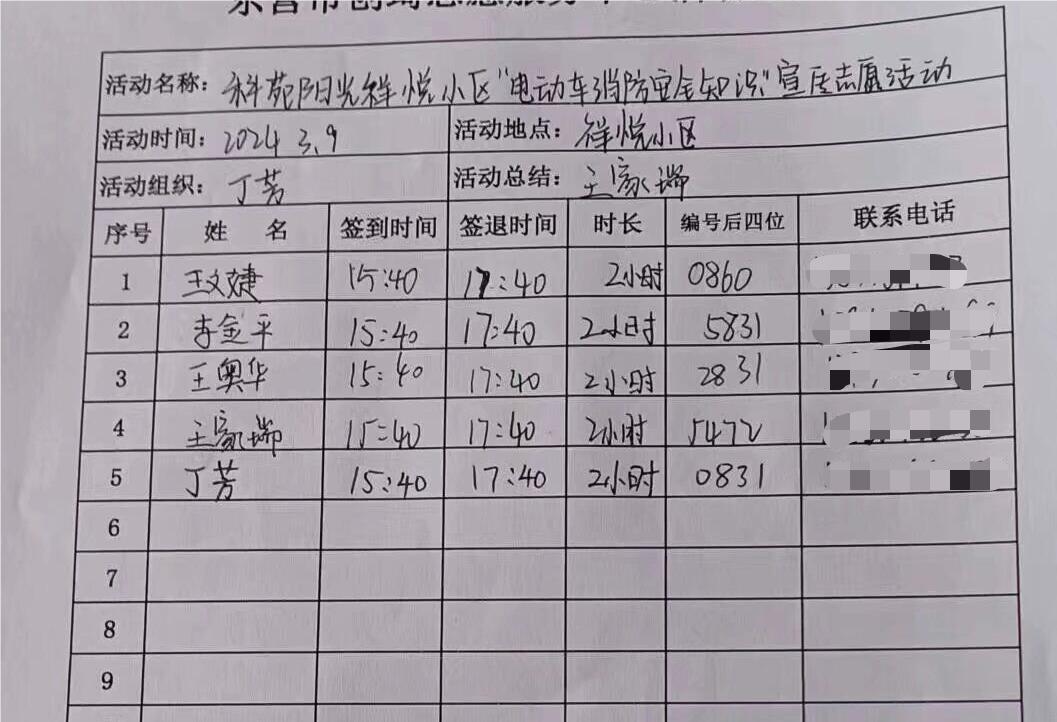 活动名称：科苑阳光祥悦小区"电动车消防安全知识"宣传志愿活动
活动时间：2024 3.9 活动地点：祥悦小区
活动组织：丁芳 活动总结：王家瑞
序号 姓名 签到时间 签退时间 时长 编号后四位 联系电话
1 王文婕 15:40 17:40 2小时 0860
2 李金平 15:40 17:40 2小时 5831
3 王奥华 15:40 17:40 2小时 2831
4 王家瑞 15:40 17:40 2小时 5472
5 丁芳 15:40 17:40 2小时 0831
6
7
8
9